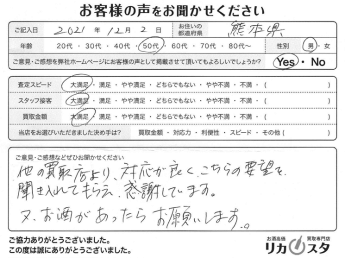 お客様の声をお聞かせください
ご記入日 2021年 12月 2日 お住いの都道府県 熊本県
年齢 20代・30代・40代・50代・60代・70代・80代〜 性別 男・女
ご意見・ご感想を弊社ホームページにお客様の声として掲載させて頂いてもよろしいでしょうか? Yes・No
査定スピード 大満足・満足・やや満足・どちらでもない・やや不満・不満・( )
スタッフ接客 大満足・満足・やや満足・どちらでもない・やや不満・不満・( )
買取金額 大満足・満足・やや満足・どちらでもない・やや不満・不満・( )
当店をお選びいただきました決め手は? 買取金額・対応力・利便性・スピード・その他( )
ご意見・ご感想などぜひお聞かせください。
他の買取店より、対応が良く、こちらの要望を
聞き入れてもらえ、感謝しています。
又、お酒があったらお願いします。
ご協力ありがとうございました。
この度は誠にありがとうございました。
お酒高価買取専門店
リカスタ